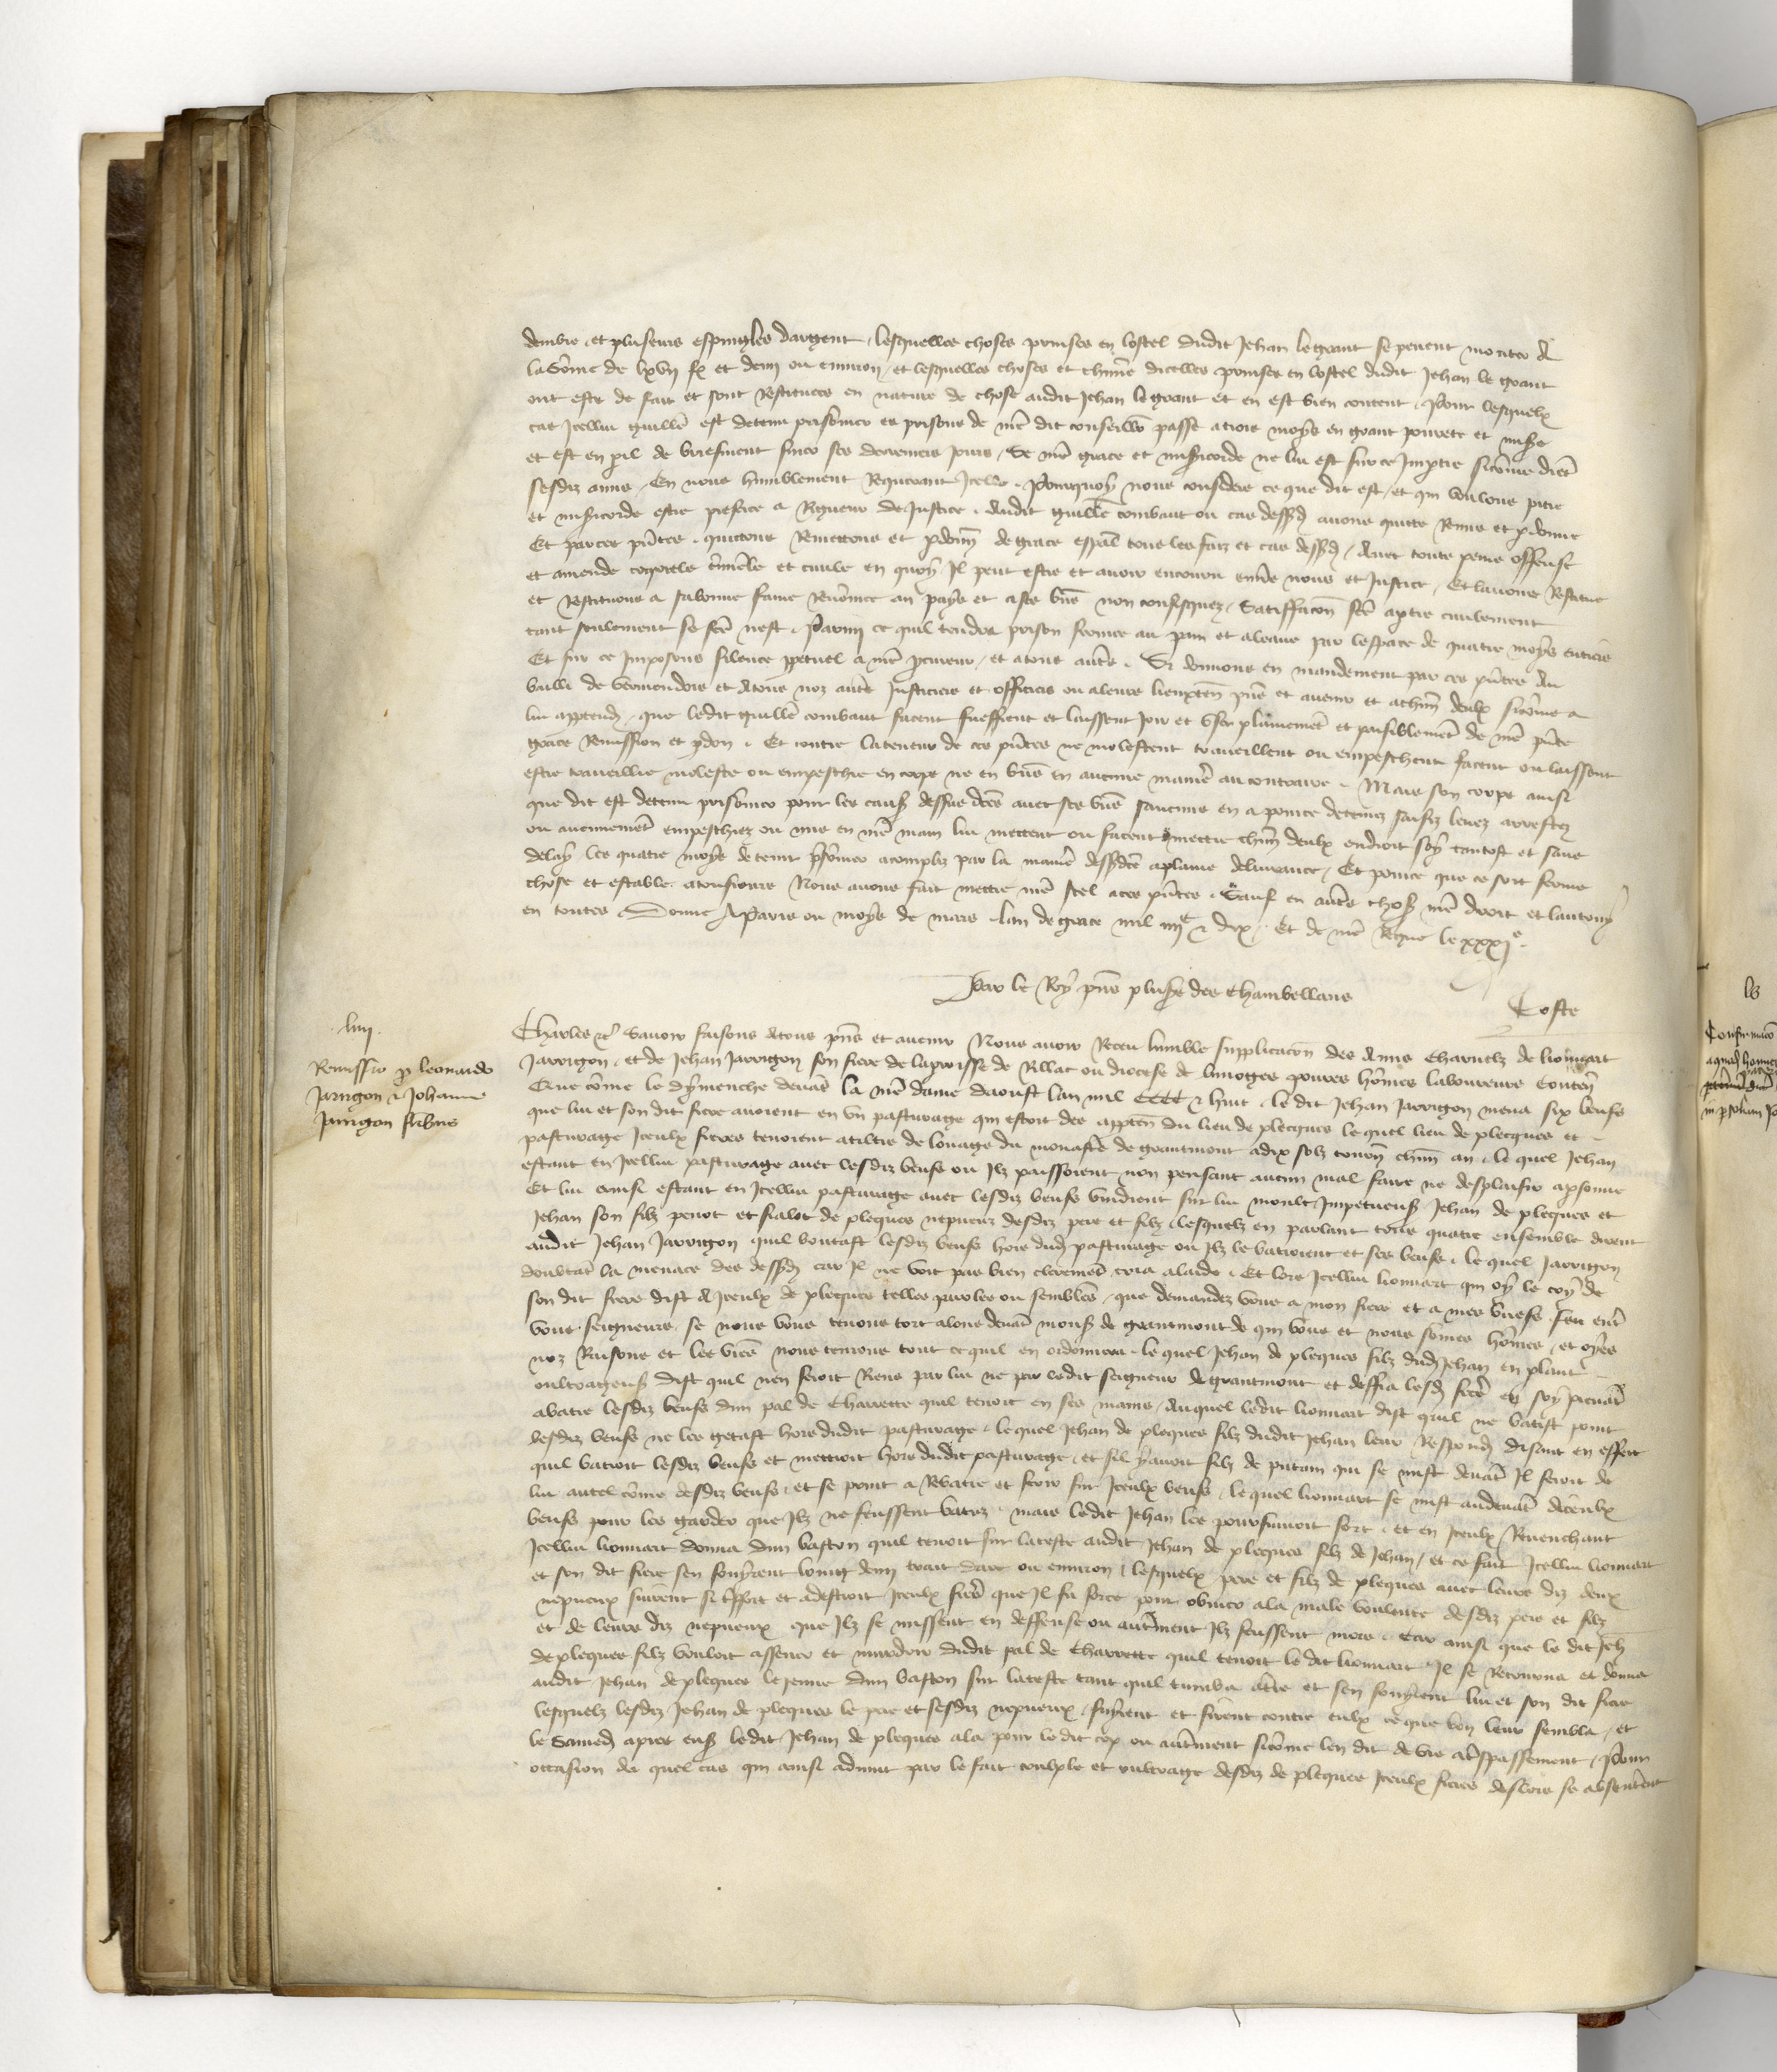 dembre et pluseurs espingles dargent lesquelles choses prinses en lostel dudit Jehan legrant se peuent monter A
la some de lxvij fx et demi ou environ et lesquelles choses et chune dicelles prinses en lostel dudit Jehan le grant
ont este de fait et sont Restituees en nature de chose audit Jehan legrant et en est bien content Pour lesquelx
cas Icellui guille est detenu prisonnier es prisons de nre dit conseiller passe a trois moys en grant povrete et misere
et est en peril de briefment finer ses derreniers jours Se nre grace et misericorde ne lui est sur ce Impartie sicome dient
sesdiz amis En nous humblement Requerant Icelle Pourquoy nous considere ce que dit est et qui voulons pitie
et misericorde estre preferee a Rigueur de Justice Audit guille combaut ou cas dessusd avons quitte Remis et pdonne
Et par ces pntes quittons Remettons et pdonns de grace espal tous les faiz et cas dessusd Avec toute peine offense
et amende corporele crimele et civile en quoy Il peut estre et avoir encouru envs nous et Justice Et lavons Restitue
et Restituons a sa bonne fame Renomee au pays et a ses biens non confisquez Satisfacon fce a ptie civilement
tant seulement se fce nest Parmi ce quil tendra prison fermee au pain et aleaue par lespace de quatre moys entiers
Et sur ce Imposons silence ppetuel a nre pcureur et atous autres Si donnons en mandement par ces pntes Au
bailli de vermendois et Atous noz autres Justiciers et officiers ou aleurs lieuxten pns et avenir et achun deulx sicome a
lui apptend que ledit guille combaut facent sueffrent et laissent joir et user plainemet et paisiblemet de nre pnte
grace Remission et pdon Et contre la teneur de ces pntes ne molestent traveillent ou empeschent facent ou laissent
estre traveillie moleste ou empeschie en corps ne en biens en aucune maniere au contraire Mais son corps ainsi
que dit est detenu prisonnier pour les causes dessus dces avec ses biens saucuns en a pour ce detenuz saisiz levez arrestez
ou aucunemet empeschiez ou mis en nre main lui mettent ou facent mettre chun deulx endroit soy tantost et sans
delay les quatre moys de tenir prisonnier acompliz par la maniere dessusdce aplaine delivrance Et pour ce que ce soit ferme
chose et estable atousjours Nous avons fait mettre nre scel aces pntes Sauf en autres choses nre droit et lautruy
en toutes Donne A Paris ou moys de mars lan de grace mil iiijc & dix Et de nre Regne le xxxje
Par le Roy pns pluseurs des Chambellans
Coste
liiij
Remissio p leonardo
Jarrigon & Johanne
Jarrigon fribus
Charles &c Savoir faisons Atous pns et avenir Nous avoir Receu lumble supplicacon des Amis charnelz de lionnart
Jarrigon et de Jehan Jarrigon son frere de la parroisse de Rillac ou diocese de limoges povres homes laboureurs Conten
Que come le dymenche devat la nre dame daoust lan mil CCCC & huit le dit Jehan Jarrigon mena six beufs
que lui et son dit frere avoient en un pasturage qui estoit des apptens du lieu de pleques lequel lieu de pleques et
pasturage Iceulx freres tenoient atiltre de louage du monaste de grantmont adix solz tourn chun an lequel Jehan
estant en Icellui pasturage avec lesdiz beufs ou Ilz paissoient non pensant aucun mal faire ne desplaisir apsonne
Et lui ainsi estant en Icellui pasturage avec lesdiz beufs vindrent sur lui moult Impetueus Jehan de pleques et
Jehan son filz penot et fialot de pleques nepveuz desdiz pere et filz lesquelz en parlant tous quatre ensemble dirent
audit Jehan Jarrigon quil boutast lesdiz beufs hors dud pasturage ou Ilz le batroient et ses beufs le quel Jarrigon
doubtat la menace des dessusd car Il ne voit pas bien cleremet cria alaide Et lors Icellui lionnart qui oy le cry de
son dit frere dist A Iceulx de pleques telles paroles ou sembles que demandez vous a mon frere et a mes buefs
vous seigneurs se nous vous tenons tort alons devat mons de grantmont de qui vous et nous somes homes et oyes
noz Raisons et les vres nous tenrons tout ce quil en ordonnera lequel Jehan de pleques filz dud Jehan en plant
oultrageus dist quil nen feroit Riens par lui ne par ledit seigneur de grantmont et deffia lesd freres en soy prenat
abatre lesdiz beufs dun pal de Charrette quil tenoit en ses mains Auquel ledit lionnart dist quil ne batist point
lesdiz beufs ne les getast hors dudit pasturage lequel Jehan de pleques filz dudit Jehan leur Respondi disant en effect
quil batroit lesdiz beufs et mettroit hors dudit pasturage et sil y avoit filz de putain qui se mist devat Il feroit de
lui autel come desdiz beufs et se print a Rebatre et ferir sur Iceulx beufs lequel lionnart se mist audevat diceulx
beufs pour les garder que Ilz ne feussent batuz mais ledit Jehan les poursuivoit fort et en Iceulx Revenchant
Icellui lionnart donna dun baston quil tenoit sur la teste audit Jehan de pleques filz de Jehan et ce fait Icellui lionnart
et son dit frere sen fouyrent loing demi trait darc ou environ lesquelx pere et filz de pleques avec leurs diz deux
nepveux suirent si fort et adestroit Iceulx freres que Il fu force pour obvier ala male voulente desdiz pere et filz
et de leurs diz nepveux que Ilz se missent en deffense ou autrement Ilz feussent mors Car ainsi que le dit Jeh
de pleques filz vouloit assener et murdrir dudit pal de Charrette quil tenoit le dit lionnart Il se Retourna et donna
audit Jehan de pleques le jenne dun baston sur la teste tant quil tumba atre et sen fouyrent lui et son dit frere
lesquelz lesdiz Jehan de pleques le pere et sesdiz nepveux suyrent et firent contre eulx ce que bon leur sembla et
le samedi apres ens ledit Jehan de pleques ala pour le dit cop ou autrement sicome len dit de vie atrespassement Pour
occasion du quel cas qui ainsi advint par le fait coulple et oultrage desdiz de pleques Iceulx freres deslors se absenterent